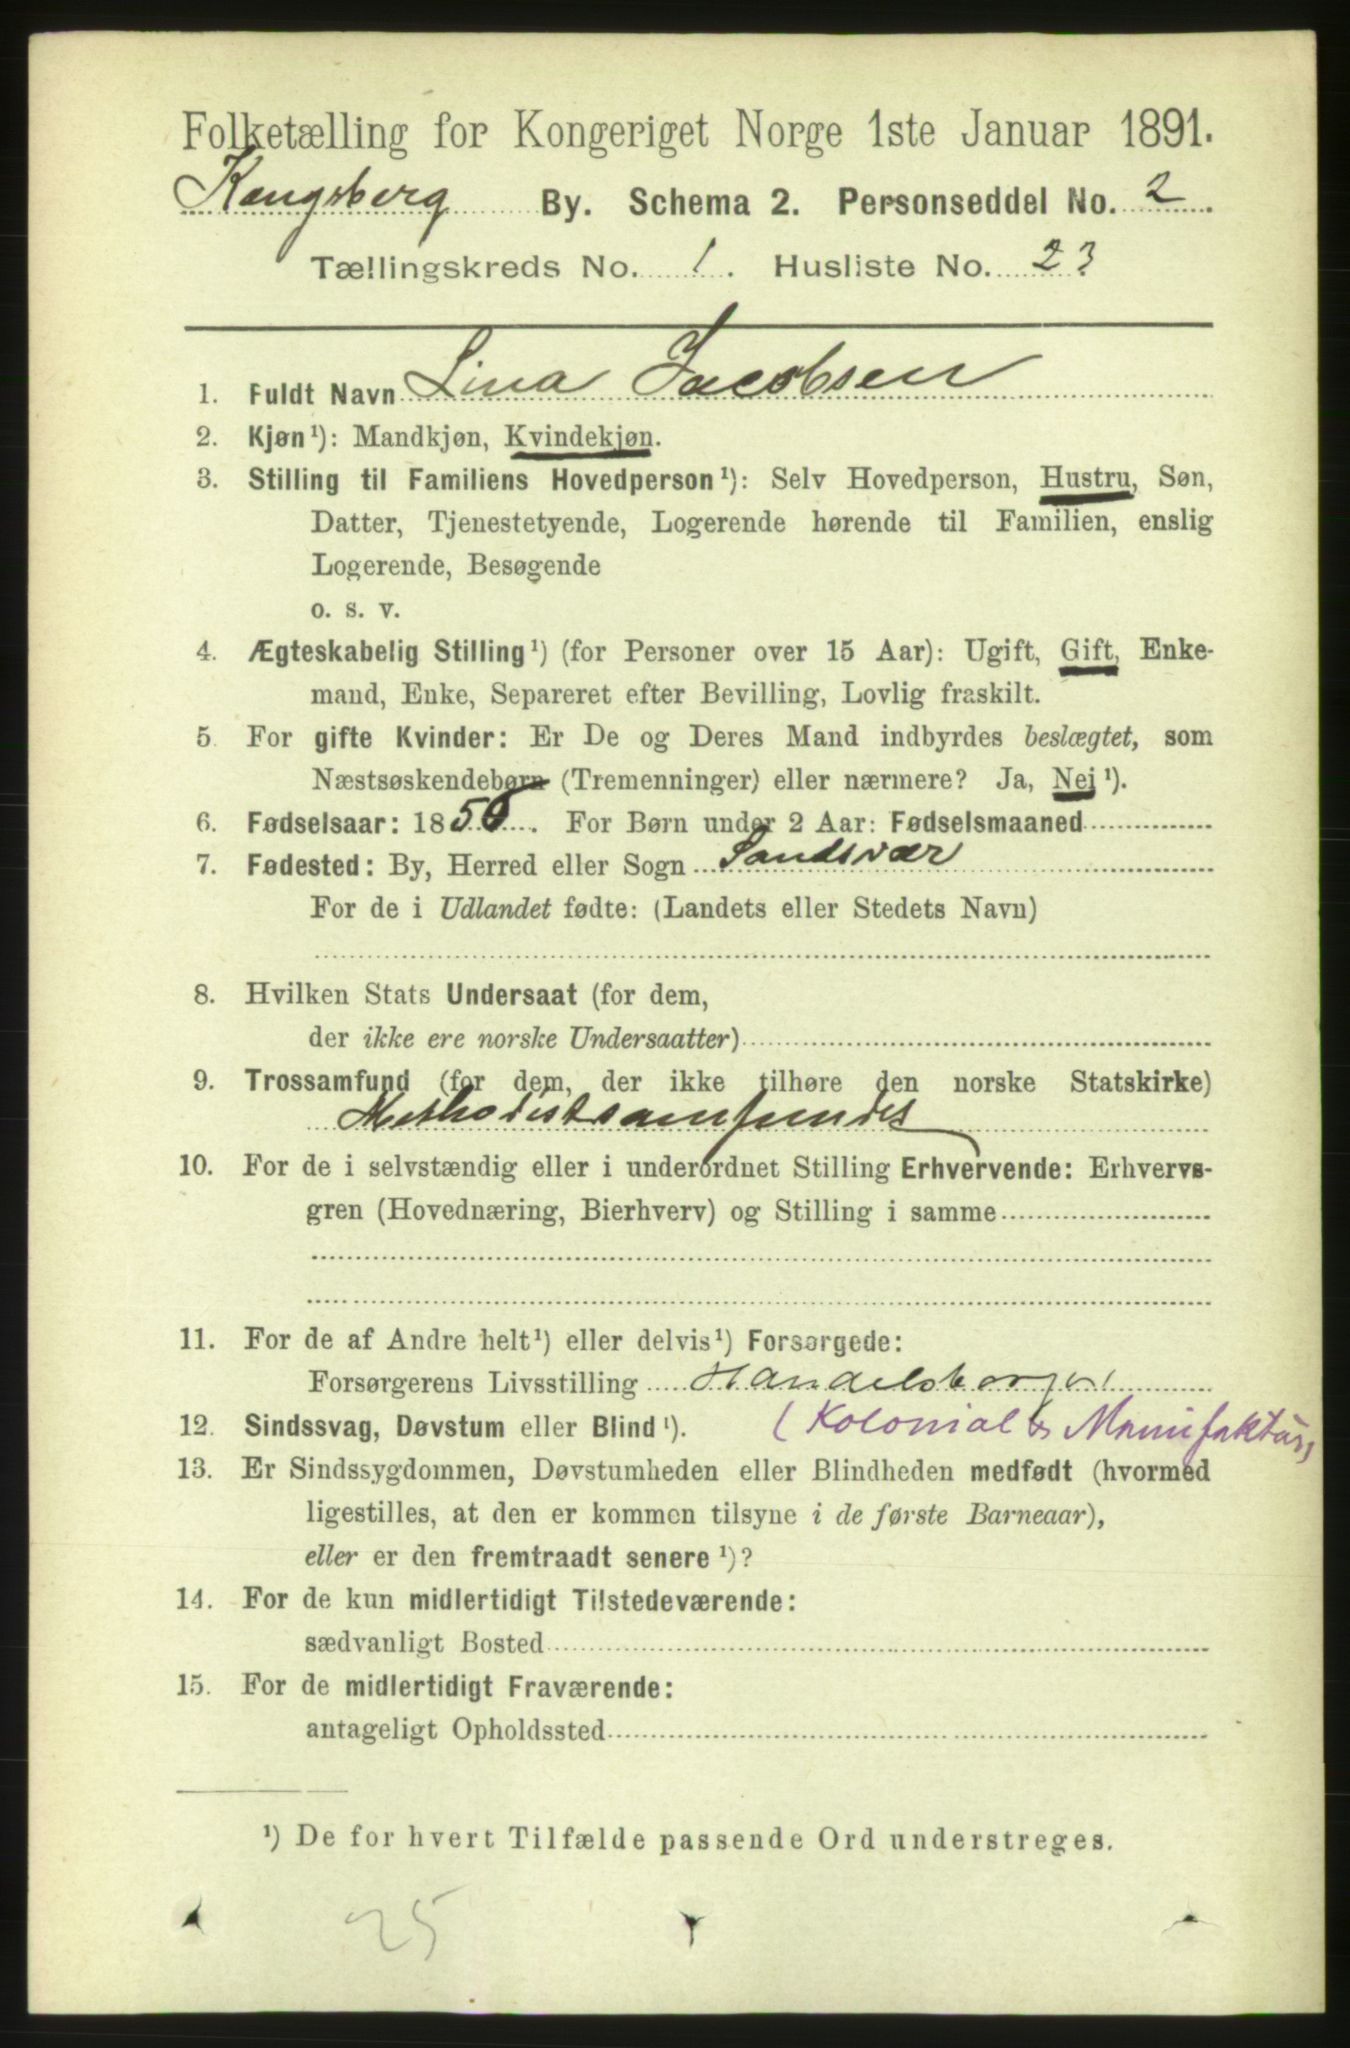 Folketælling for Kongeriget Norge 1ste Januar 1891.
Kongsberg By. Schema 2. Personseddel No. 2
Tællingskreds No. 1. Husliste No. 23
1. Fuldt Navn Lina Jacobsen
2. Kjøn¹): Mandkjøn, Kvindekjøn.
3. Stilling til Familiens Hovedperson¹): Selv Hovedperson, Hustru, Søn,
Datter, Tjenestetyende, Logerende hørende til Familien, enslig
Logerende, Besøgende
o. s. v.
4. Ægteskabelig Stilling¹) (for Personer over 15 Aar): Ugift, Gift, Enke-
mand, Enke, Separeret efter Bevilling, Lovlig fraskilt.
5. For gifte Kvinder: Er De og Deres Mand indbyrdes beslægtet, som
Næstsøskendebørn (Tremenninger) eller nærmere? Ja, Nej¹).
6. Fødselsaar: 1856. For Børn under 2 Aar: Fødselsmaaned
7. Fødested: By, Herred eller Sogn Sandsvær
For de i Udlandet fødte: (Landets eller Stedets Navn)
8. Hvilken Stats Undersaat (for dem,
der ikke ere norske Undersaatter)
9. Trossamfund (for dem, der ikke tilhøre den norske Statskirke)
Methodistsamfundet
10. For de i selvstændig eller i underordnet Stilling Erhvervende: Erhvervs-
gren (Hovednæring, Bierhverv) og Stilling i samme
11. For de af Andre helt¹) eller delvis¹) Forsørgede:
Forsørgerens Livsstilling Handelsborger
12. Sindssvag, Døvstum eller Blind¹). (Kolonial & Manufaktur)
13. Er Sindssygdommen, Døvstumheden eller Blindheden medfødt (hvormed
ligestilles, at den er kommen tilsyne i de første Barneaar),
eller er den fremtraadt senere¹)?
14. For de kun midlertidigt Tilstedeværende:
sædvanligt Bosted
15. For de midlertidigt Fraværende:
antageligt Opholdssted
¹) De for hvert Tilfælde passende Ord understreges.
25